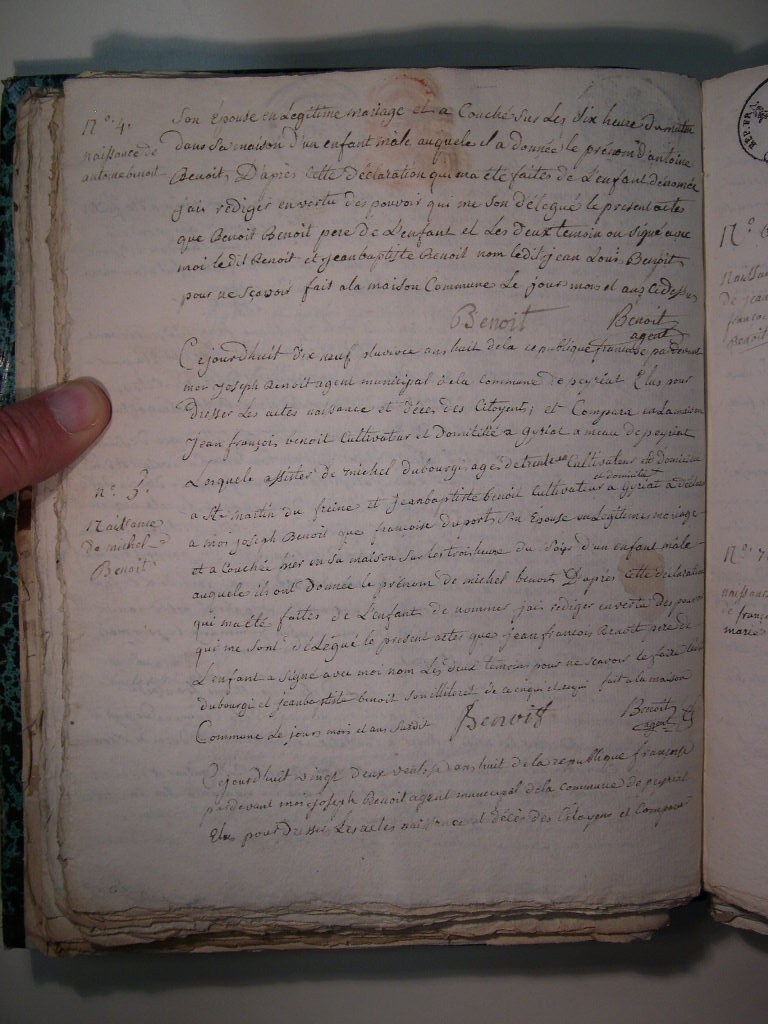 N.° 4.
naissance de
antoine benoit
Son Epouse en Legitime mariage et a Couché sur Les Six heure du matin
dans sa maison d'un enfant male auquele il a donnée le prénom d'antoine
Benoit, D'après Cette déclaration qui ma été faites de L'enfant dénomée
jais rediger en vertu des pouvoir qui me son délegué le present actes
que Benoit Benoit pere de L'enfant et Les deux temoin on signé avec
moi le dit Benoit et jean baptiste Benoit nom le dit jean Louis Benoit
pour ne sçavoir fait a la maison Commune Le jour mois et ans Cidessus
Benoit Benoit
agent
n.° 5.
Naissance
de michel
Benoit
Cejourdhuit dix neuf pluviose ans huit de la republique francaise par devant
moi joseph Benoit agent municipal de la commune de peyriat Elus pour
Dresser Les actes naissance et décès des Citoyens, et Comparu en La maison
Jean françois benoit Cultivateur et Domitilié a Gyriat a meau de peyriat
Lesquele assister de michel dubourgi agé de trente Cultivateur et domicilié
a St. martin du freine et jean baptiste benoit Cultivateur et domitilié a Gyriat a déclaré
a moi joseph Benoit que francoise duport Son Epouse en Legitime mariage
et a Couchée hier en sa maison sur les trois heure du Soir d'un enfant male
auquele ils ont Donnée le prénom de michel benoit D'après Cette declaration
qui ma été faites de L'enfant de nommer, jais rediger en vertu des pouvoir
qui me sont délégué le present actes que jean francois Benoit pere de
L'enfant a signé avec moi nom Les deux temoins pour ne scavoir le faire
dubourgi et jean baptiste benoit son illiteret de ce enquit fait a la maison
Commune Le jour mois et ans Susdit Benoit Benoit
agent
Cejourdhuit vingt deux ventose ans huit de la republique francaise
pardevant moi joseph Benoit agent municipal de la commune de peyriat
Elus pour Dresser Les actes naissance et décès des Citoyens et Comparu
N.° 6
Naissan
de jean
francoi
Benoit
N.° 7
naissance
de franço
marie